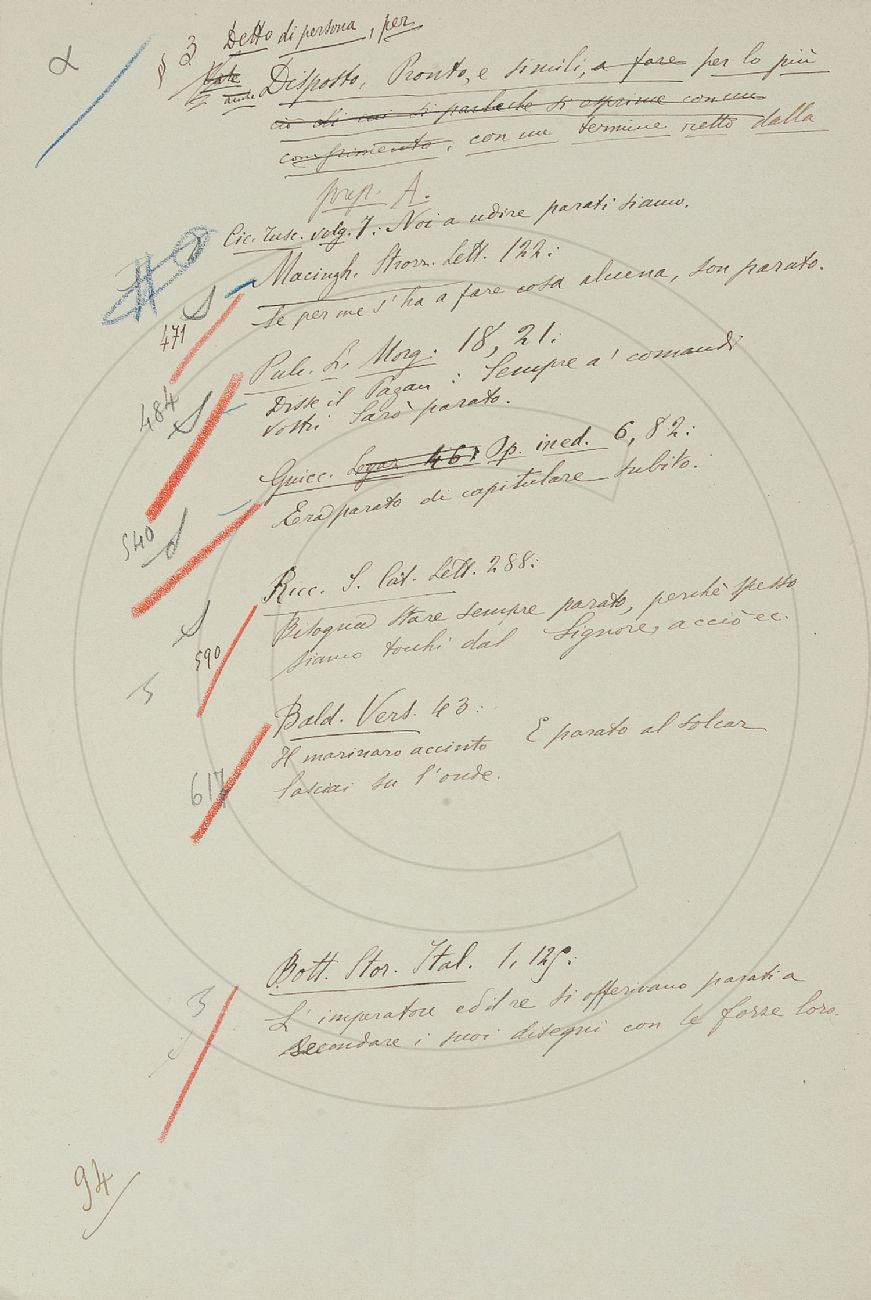 α
§ 3 Detto di persona, per
Vale anche Disposto, Pronto, e simili, a fare per lo più
ciò di cui si parla che si esprime con un
compimento, con un termine retto dalla
prep. A.
Cic. Tusc. volg. 7. Noi a udire parati siamo.
Macingh. Strozz. Lett. 122:
Se per me s'ha a fare cosa alcuna, son parato.
471
Pulc. L. Morg. 18, 21:
Disse il Pagan: Sempre a' comandi
vostri sarò parato.
484
Guicc. Legaz. 461 Op. ined. 6, 82:
Era parato di capitulare subito.
540
Ricc. S. Cat. Lett. 288:
Bisogna stare sempre parato, perchè spesso
siamo tocchi dal Signore, acciò ec.
590
5
Bald. Vers. 43:
Il marinaro accinto E parato al solcar
lasciai su l'onde.
617
Bott. Stor. Ital. 1, 125:
L'imperatore ed il re si offerivano parati a
secondare i suoi disegni con le forze loro
3
94